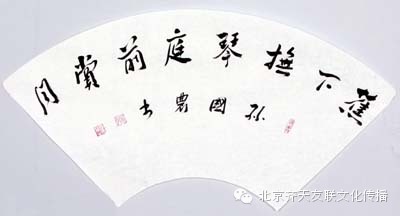 蕉下撫琴庭前賞月
孙國農书
北京齐天友联文化传播